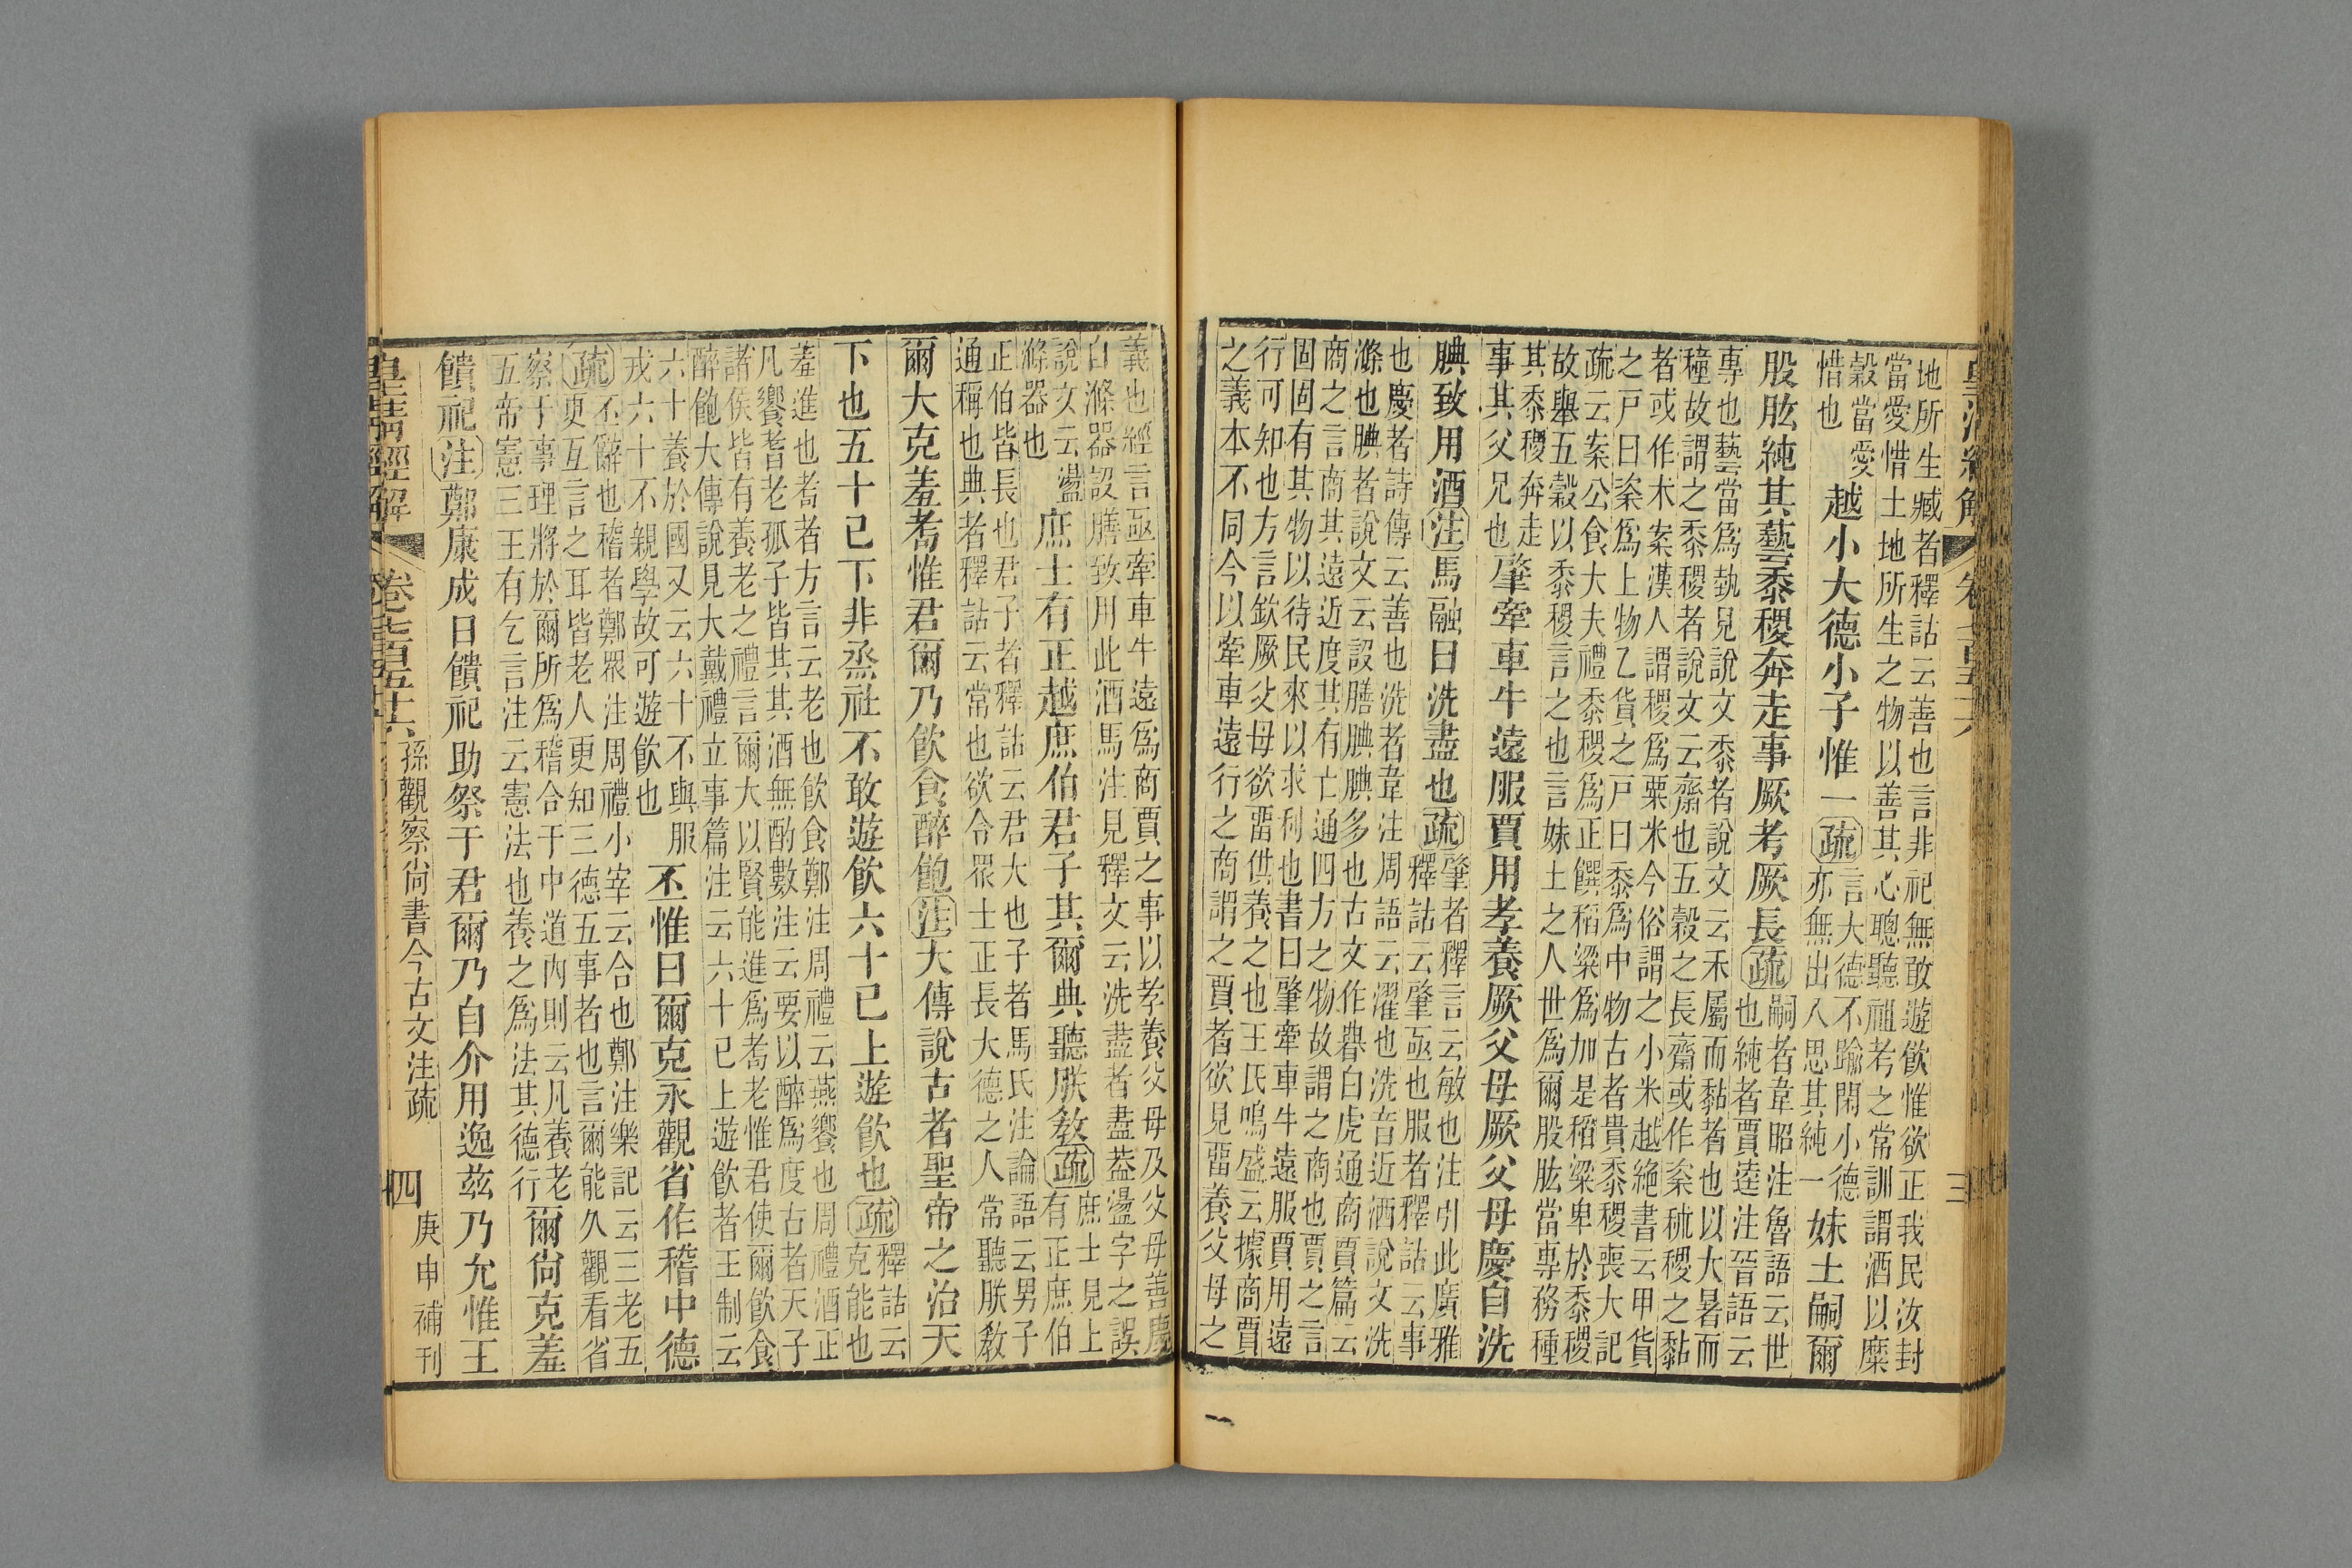 皇清經解 卷七百五十六 三
地所生臧者釋詁云善也言非祀無敢遊飲惟欲正我民汝封
當愛惜土地所生之物以善其心聰聽祖考之常訓謂酒以糜
穀當愛
惜也
越小大德小子惟一疏
言大德不踰閑小德
亦無出入思其純一
妹土嗣爾
股肱純其藝黍稷奔走事厥考厥長疏
嗣者韋昭注魯語云世
也純者賈逵注晉語云
專也藝當爲埶見說文黍者說文云禾屬而黏者也以大暑而
穜故謂之黍稷者說文云齋也五穀之長齋或作粢秫稷之黏
者或作朮案漢人謂稷爲粟米今俗謂之小米越絕書云甲貨
之戸曰粢爲上物乙貨之戸曰黍爲中物古者貴黍稷喪大記
疏云案公食大夫禮黍稷爲正饌稻粱爲加是稻粱卑於黍稷
故舉五穀以黍稷言之也言妹土之人世爲爾股肱當專務種
其黍稷奔走
事其父兄也
肇牽車牛遠服賈用孝養厥父母厥父母慶自洗
腆致用酒注馬融曰洗盡也疏
肇者釋言云敏也注引此廣雅
釋詁云肇亟也服者釋詁云事
也慶者詩傳云善也洗者韋注周語云濯也洗音近洒說文洗
滌也腆者說文云設膳腆腆多也古文作㫲白虎通商賈篇云
商之言商其遠近度其有亡通四方之物故謂之商也賈之言
固固有其物以待民來以求利也書曰肇牽車牛遠服賈用遠
行可知也方言欽厥父母欲畱供養之也王氏鳴盛云據商賈
之義本不同今以牽車遠行之商謂之賈者欲見畱養父母之
義也經言亟牽車牛遠爲商賈之事以孝養父母及父母善慶
自滌器設膳致用此酒馬注見釋文云洗盡者盡葢盪字之誤
說文云盪
滌器也
庶士有正越庶伯君子其爾典聽朕敎疏
庶士見上
有正庶伯
正伯皆長也君子者釋詁云君大也子者馬氏注論語云男子
通稱也典者釋詁云常也欲令眾士正長大德之人常聽朕敎
爾大克羞耇惟君爾乃飲食醉飽注大傳說古者聖帝之治天
下也五十已下非烝社不敢遊飲六十已上遊飲也疏
釋詁云
克能也
羞進也耇者方言云老也飲食鄭注周禮云燕饗也周禮酒正
凡饗耆老孤子皆共其酒無酌數注云要以醉爲度古者天子
諸侯皆有養老之禮言爾大以賢能進爲耇老惟君使爾飲食
醉飽大傳說見大戴禮立事篇注云六十已上遊飲者王制云
六十養於國又云六十不與服
戎六十不親學故可遊飲也
丕惟曰爾克永觀省作稽中德
疏
丕辭也稽者鄭眾注周禮小宰云合也鄭注樂記云三老五
更互言之耳皆老人更知三德五事者也言爾能久觀看省
察于事理將於爾所爲稽合于中道內則云凡養老
五帝憲三王有乞言注云憲法也養之爲法其德行
爾尙克羞
饋祀注鄭康成曰饋祀助祭于君爾乃自介用逸茲乃允惟王
皇清經解 卷七百五十六 孫觀察尙書今古文注疏 四 庚申補刊